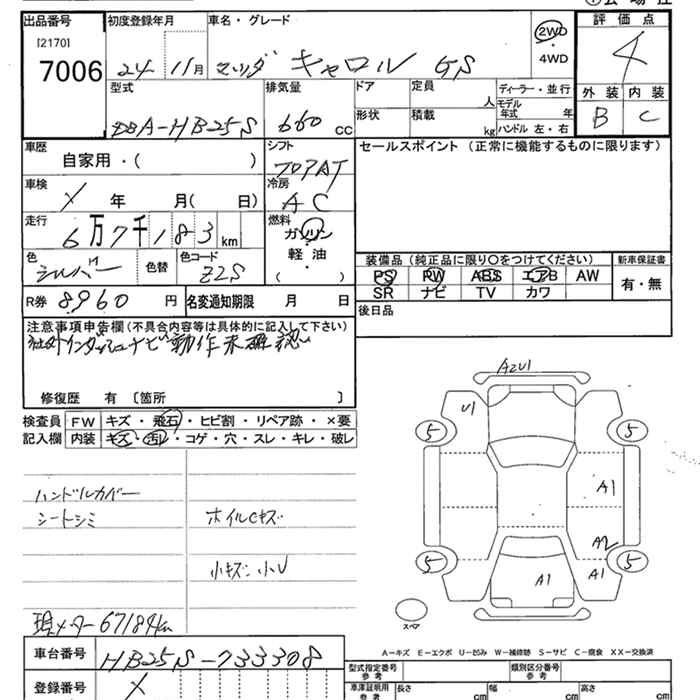 出品番号 初度登録年月 車名・グレード 評価点
[2170]
7006 24 11月 マツダ キャロル GS 2WD・4WD 4
型式 排気量 ドア 定員 人 ディーラー・並行 外装 内装
DBA-HB25S 660 cc 形状 積載 kg モデル年式 年 B C
ハンドル 左・右
車歴 シフト セールスポイント (正常に機能するものに限ります)
自家用・( ) フロアAT
車検 冷房
X 年 月( 日) AC
走行 燃料
6万7千183km ガソリン・軽油
色 色替 色コード ( )
シルバー Z2S
装備品 (純正品に限り○をつけてください) 新車保証書
PS PW ABS エアB AW 有・無
SR ナビ TV カワ
R券 8960 円 名変通知期限 月 日 後日品
注意事項申告欄(不具合内容等は具体的に記入して下さい)
社外インダッシュナビ動作未確認
修復歴 有 〔箇所 〕
検査員 FW キズ・飛石・ヒビ割・リペア跡・×要
記入欄 内装 キズ・汚レ・コゲ・穴・スレ・キレ・破レ
A2U1
U1
5 5
A1
A2
5 A1 5
A1
スペア
ハンドルカバー
シートシミ ホイルCキズ
小キズ・小U
現メーター67184km
A-キズ E-エクボ U-凹み W-補修跡 S-サビ C-腐食 XX-交換済
車台番号 HB25S-733308
型式指定番号 参考 類別区分番号 参考
登録番号 X
車庫証明用 参考 長さ cm 幅 cm 高さ cm